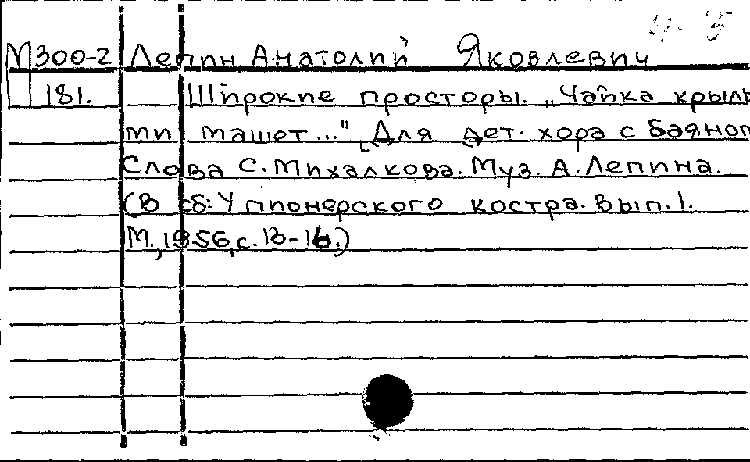 М300-2 Лепин Анатолий Яковлевич
181. Широкие просторы. „Чайка крыль
ми машет..." [Для дет. хора с баяном
Слова С. Михалкова. Муз. А. Лепина.
(В сб: У пионерского костра. Вып. 1.
М., 1956, с. 13-16.)